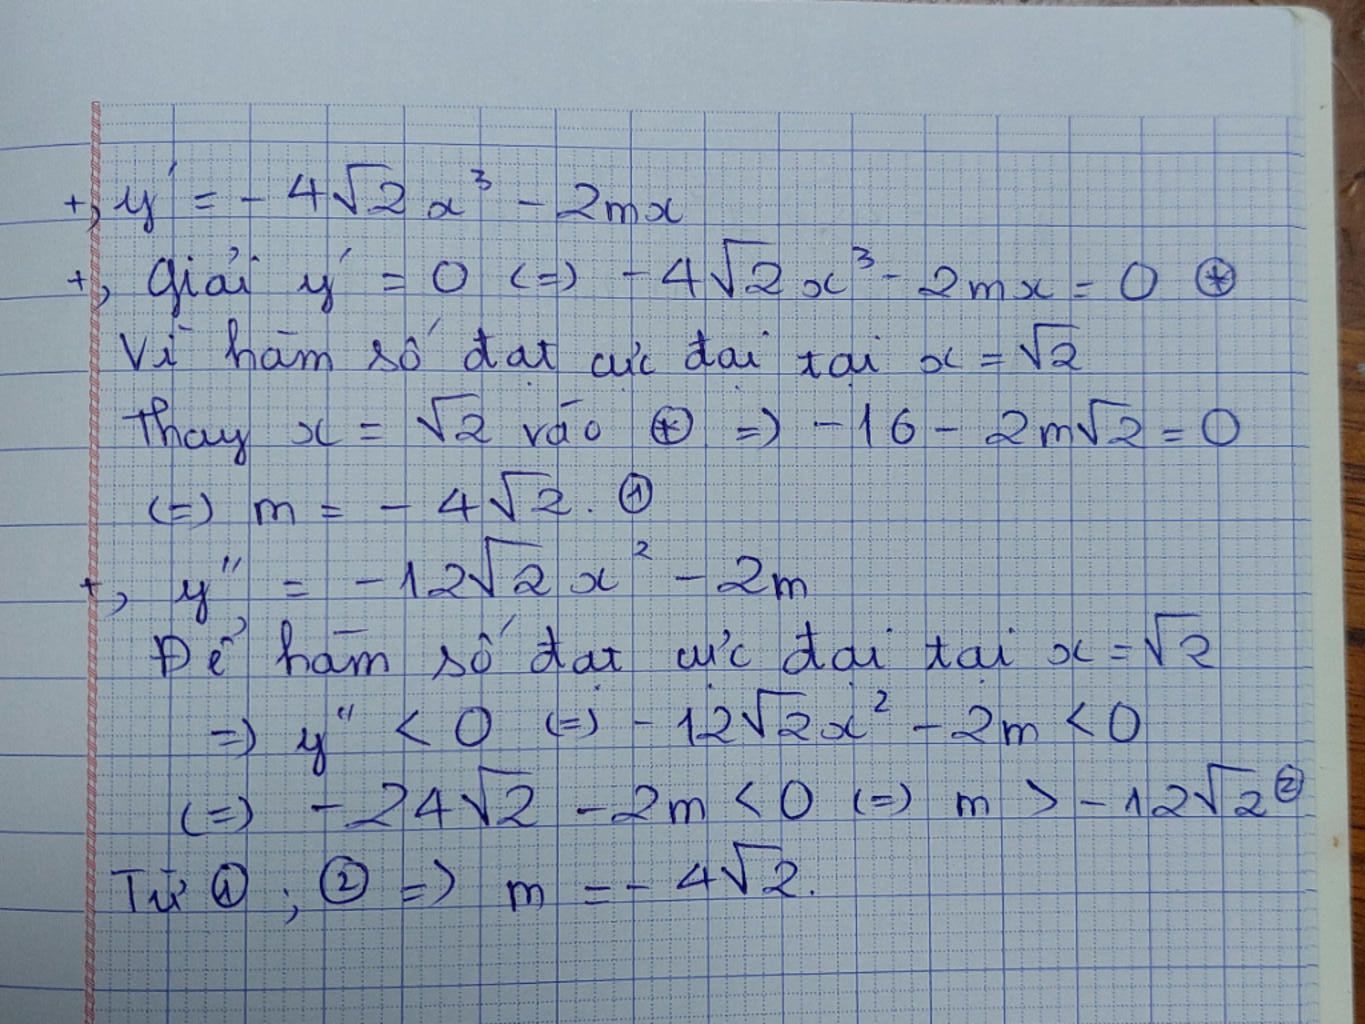 +, y' = - 4√2 x³ - 2mx
+, Giải y' = 0 (=) - 4√2 x³ - 2mx = 0 (*)
Vì hàm số đạt cực đại tại x = √2
Thay x = √2 vào (*) => -16 - 2m√2 = 0
(=) m = - 4√2. ①
+, y" = -12√2 x² - 2m
Để hàm số đạt cực đại tại x = √2
=> y" < 0 (=) - 12√2x² - 2m < 0
(=) - 24√2 - 2m < 0 (=) m > -12√2 ②
Từ ① ; ② => m = - 4√2.